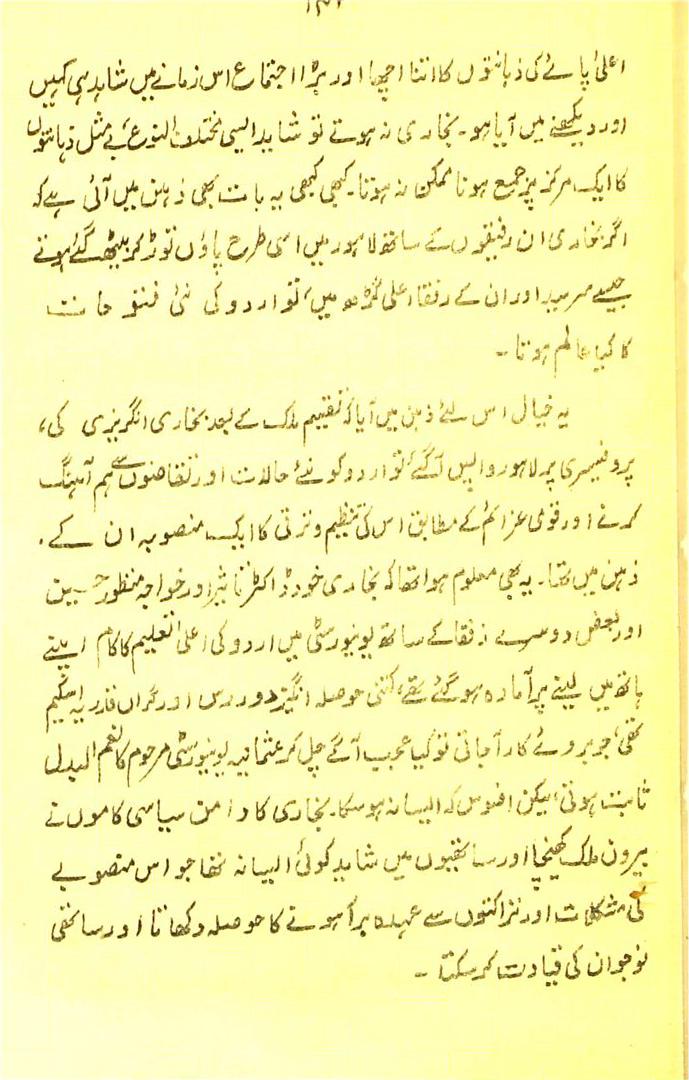 اعلیٰ پائے کی ذہانتوں کا اتنا اچھا اور بڑا اجتماع اس زمانے میں شاید ہی کہیں
اور دیکھنے میں آیا ہو۔ بخاری نہ ہوتے تو شاید ایسی مختلف النوع بے مثل ذہانتوں
کا ایک مرکز پر جمع ہونا ممکن نہ ہوتا۔ کبھی کبھی یہ بات بھی ذہن میں آئی ہے کہ
اگر بخاری ان رفیقوں کے ساتھ لاہور میں اسی طرح پاؤں توڑ کر بیٹھ گئے ہوتے
جیسے سرسید اور ان کے رفقاء علی گڑھ میں، تو اردو کی نئی فتوحات
کا کیا عالم ہوتا۔
یہ خیال اس لئے ذہن میں آیا کہ تقسیم ملک کے بعد بخاری انگریزی کی،
پروفیسری پر لاہور واپس آ گئے تو اردو کو نئے حالات اور تقاضوں سے ہم آہنگ
کرنے اور قومی عزائم کے مطابق اس کی تنظیم و ترقی کا ایک منصوبہ ان کے
ذہن میں تھا۔ یہ بھی معلوم ہوا تھا کہ بخاری خود ڈاکٹر تاثیر اور خواجہ منظور حسین
اور بعض دوسرے رفقا کے ساتھ یونیورسٹی میں اردو کی اعلیٰ تعلیم کا کام اپنے
ہاتھ میں لینے پر آمادہ ہو گئے تھے، کتنی حوصلہ انگیز دوررس اور گراں قدر یہ اسکیم
تھی، جو بروئے کار آ جاتی تو کیا عجب آگے چل کر عثمانیہ یونیورسٹی مرحوم کا نعم البدل
ثابت ہوتی، لیکن افسوس کہ ایسا نہ ہو سکا۔ بخاری کا دامن سیاسی کاموں نے
بیرون ملک کھینچا اور ساتھیوں میں شاید کوئی ایسا نہ تھا جو اس منصوبے
کی مشکلات اور نزاکتوں سے عہدہ برآ ہونے کا حوصلہ دکھاتا اور ساتھی
نوجوان کی قیادت کر سکتا۔